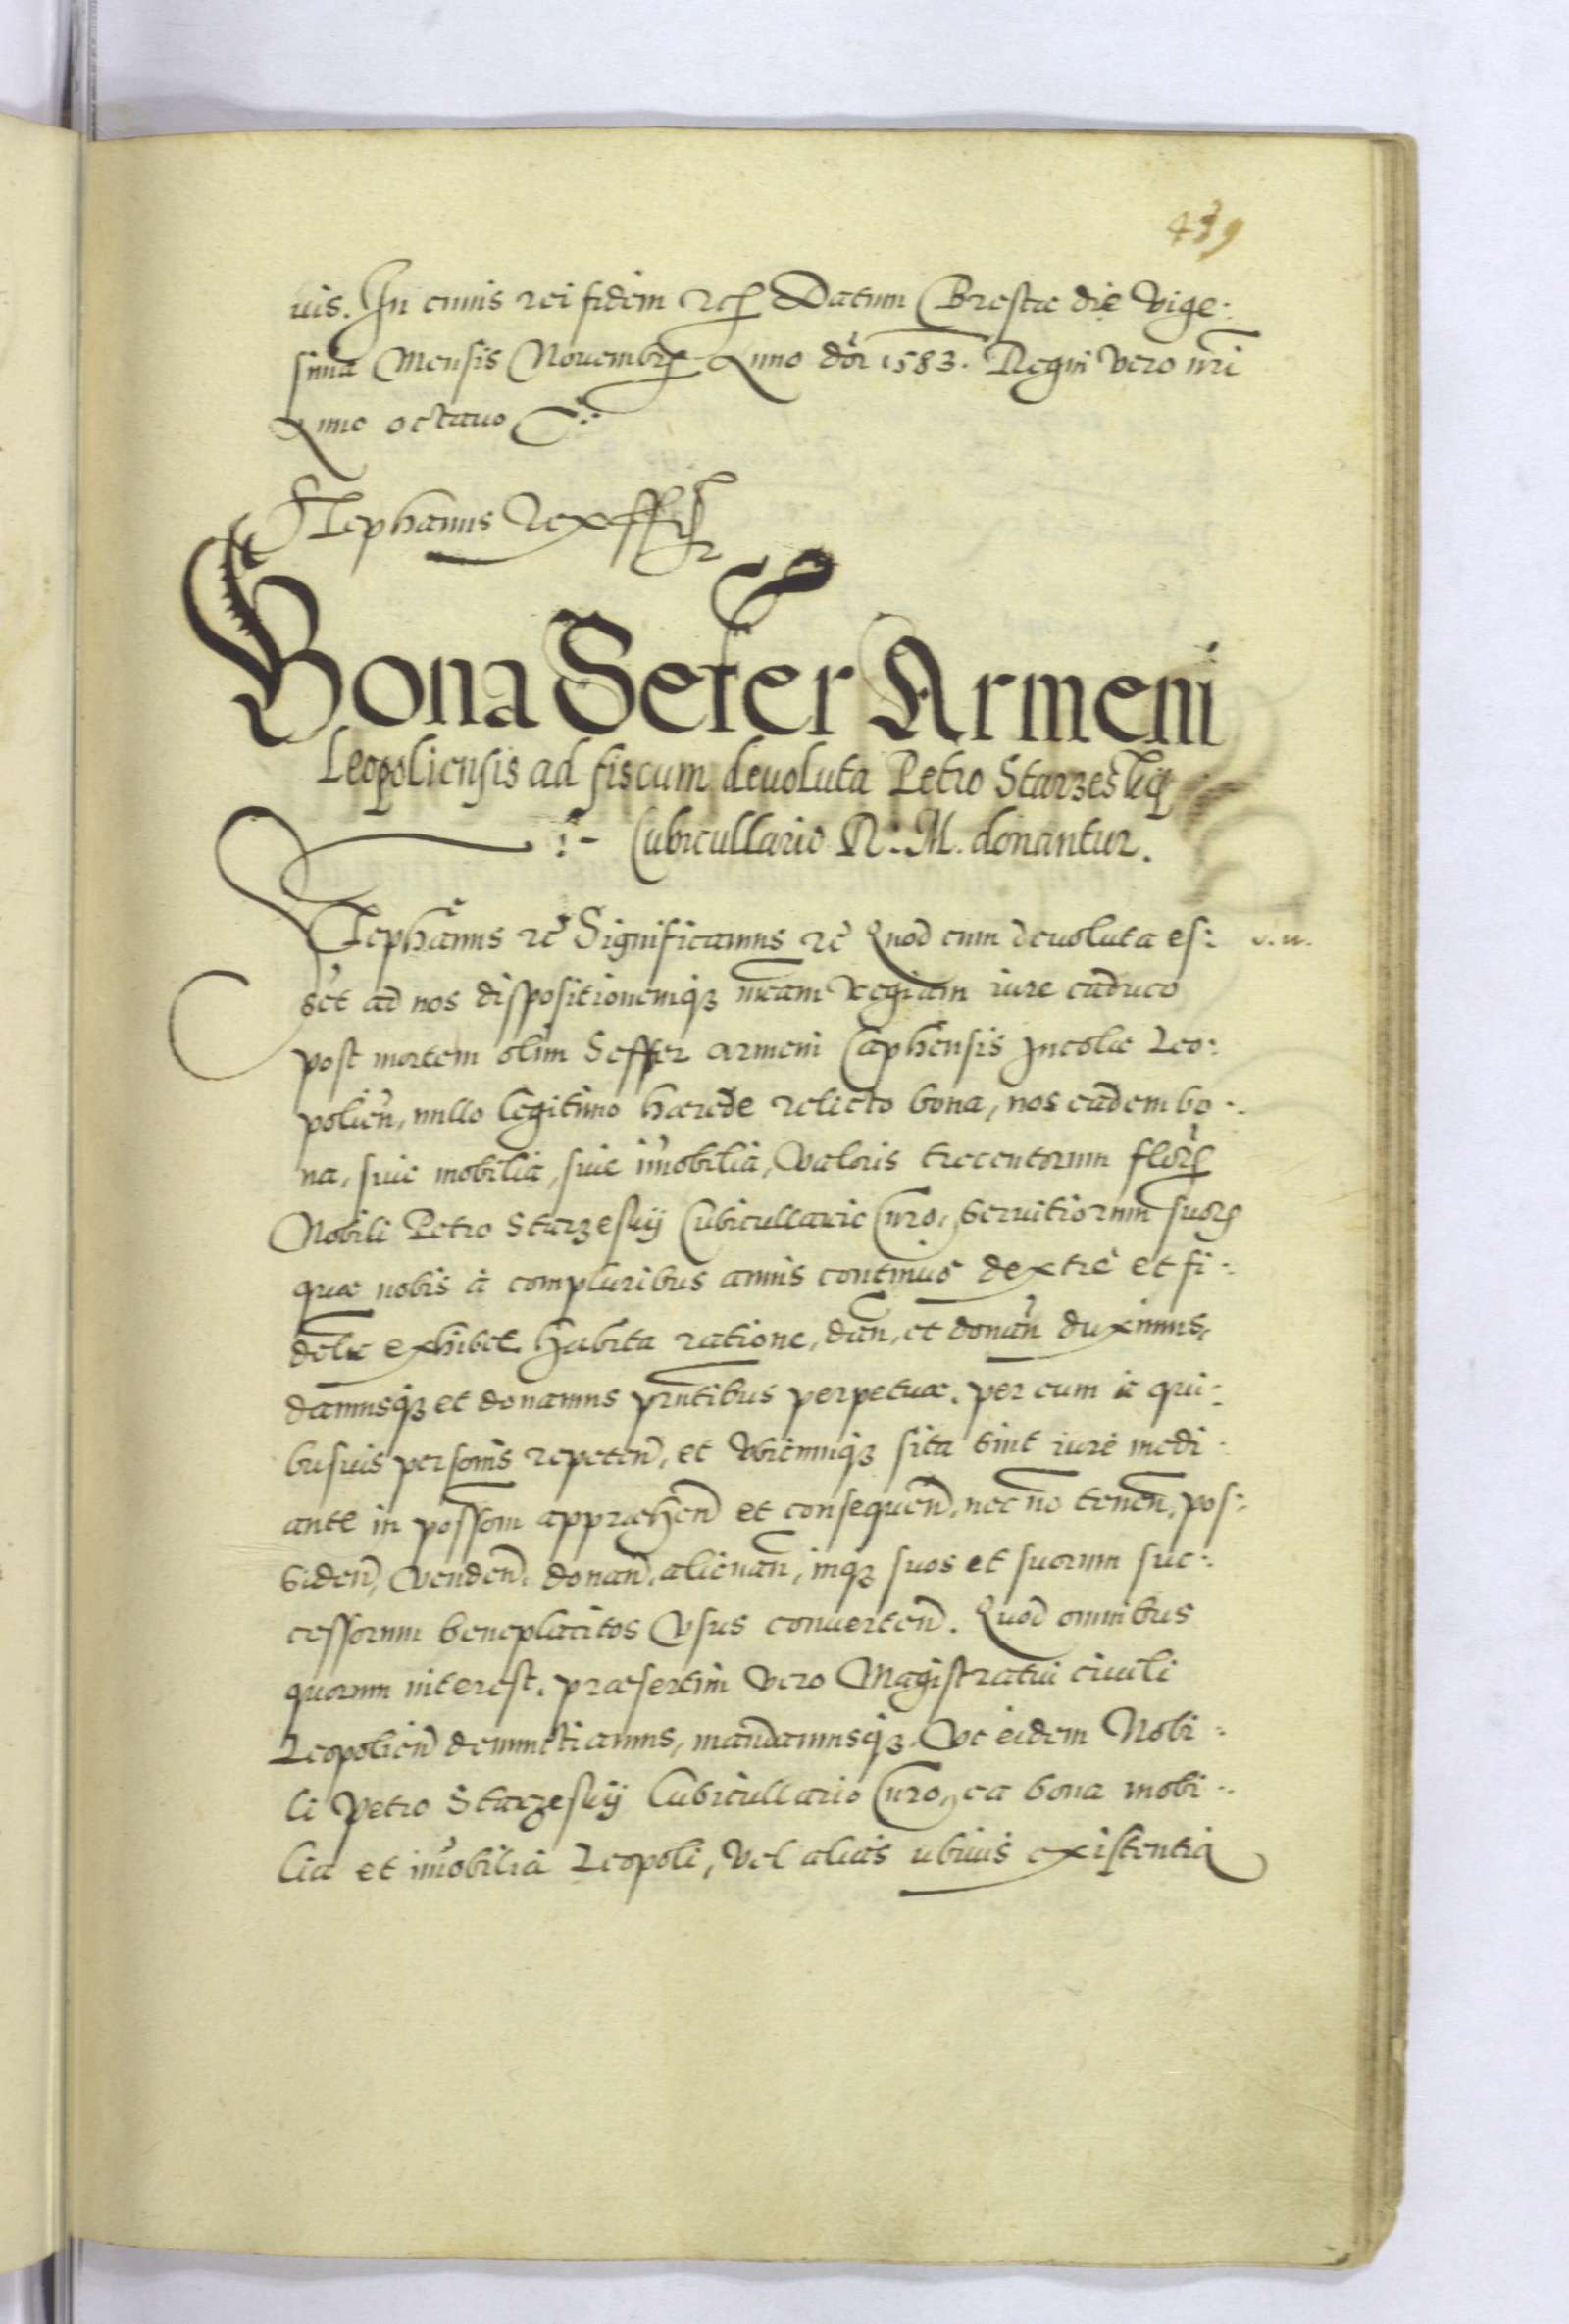 439
uis. In cuius rei fidem etc Datum Brestæ die Vige:
sima Mensis Nouembr Anno dni 1583. Regni vero nri
Anno octauo
Stephanus Rex ssst
Bona Sefer Armeni
Leopoliensis ad fiscum deuoluta Petro Starzeskij
Cubicullario R: M. donantur.
Stephanus rc Significamus rc Quod cum deuoluta es:
set ad nos dispositionemq3 nram regiam iure caduco
post mortem olim Seffer armeni Caphensis Incolæ Leo:
polien, nullo legitimo hærede relicto bona, nos eadem bo:
na, siue mobilia, siue imobilia, Valoris trecentorum flor
Nobili Petro Starzeskij Cubicullario nro, seruitiorum suor
quæ nobis à compluribus annis continuè dextrè et fi:
delr exhibet habita ratione, dan, et donan duximus,
damusq3 et donamus prntibus perpetuæ, per eum à qui:
busuis personis repeten, et vbicunq3 sita sint iure medi:
ante in possom appræhen et consequen, nec no tenen, pos:
siden, Venden, donan, alienan, inq3 suos et suorum suc:
cessorum beneplacitos Vsus conuerten. Quod omnibus
quorum interest, præsertim vero Magistratui ciuili
Leopolien denunctiamus, mandamusq3. Vt eidem Nobi:
li Petro Starzeskij Cubicullario nro, ea bona mobi:
lia et imobilia Leopoli, Vel aliàs ubiuis existentia